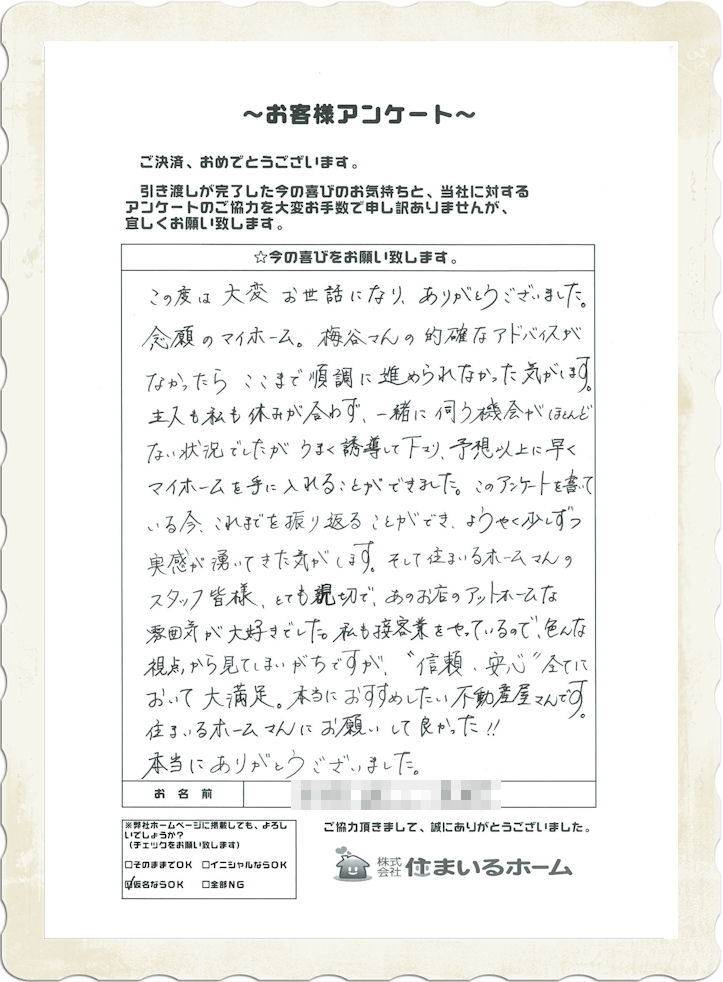 ～お客様アンケート～
ご決済、おめでとうございます。
引き渡しが完了した今の喜びのお気持ちと、当社に対する
アンケートのご協力を大変お手数で申し訳ありませんが、
宜しくお願い致します。
☆今の喜びをお願い致します。
この度は大変お世話になり、ありがとうございました。
念願のマイホーム。梅谷さんの的確なアドバイスが
なかったらここまで順調に進められなかった気がします。
主人も私も休みが合わず、一緒に伺う機会がほとんど
ない状況でしたがうまく誘導して下さり、予想以上に早く
マイホームを手に入れることができました。このアンケートを書いて
いる今、これまでを振り返ることができ、ようやく少しずつ
実感が湧いてきた気がします。そして住まいるホームさんの
スタッフ皆様、とても親切で、あのお店のアットホームな
雰囲気が大好きでした。私も接客業をやっているので、色んな
視点から見てしまいがちですが、"信頼、安心"全てに
おいて大満足。本当におすすめしたい不動産屋さんです。
住まいるホームさんにお願いして良かった!!
本当にありがとうございました。
お名前
※弊社ホームページに掲載しても、よろし
いでしょうか？
(チェックをお願い致します)
□そのままでOK □イニシャルならOK
☑仮名ならOK □全部NG
ご協力頂きまして、誠にありがとうございました。
株式会社 住まいるホーム